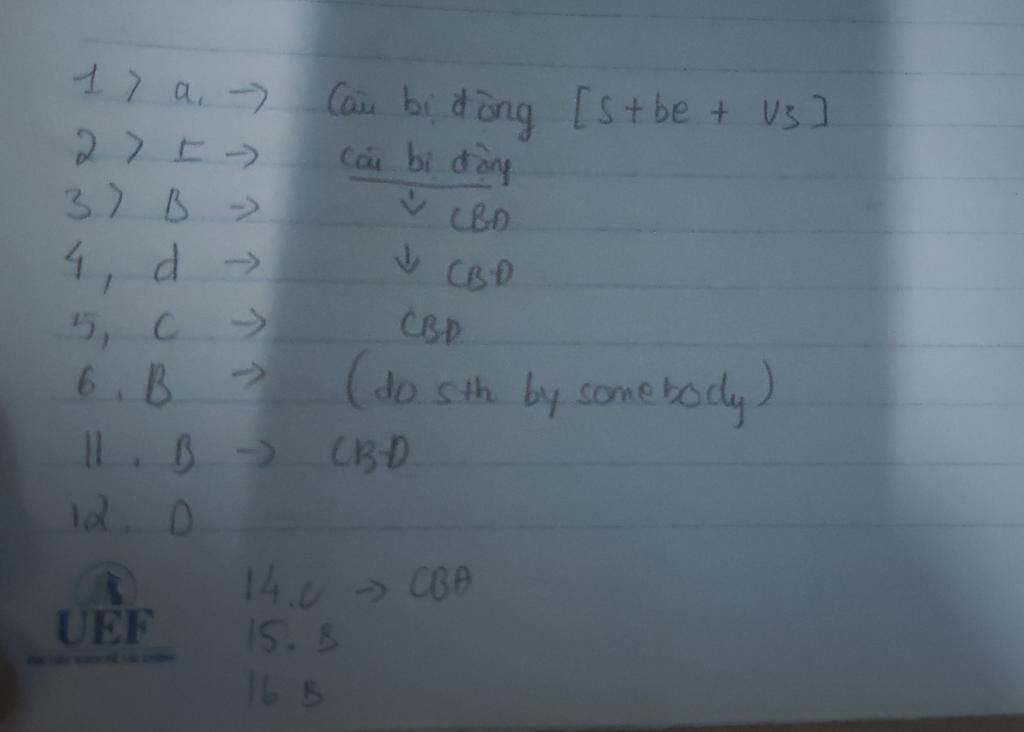 1 > a. → Câu bị động [S + be + V3]
2 > → Câu bị động
3 > B → ↓ CBD
4, d → ↓ CBD
5, C → CBD
6. B → (do sth by somebody)
11. B → CBD
12. D
14. C → CBD
15. B
16 B
UEF